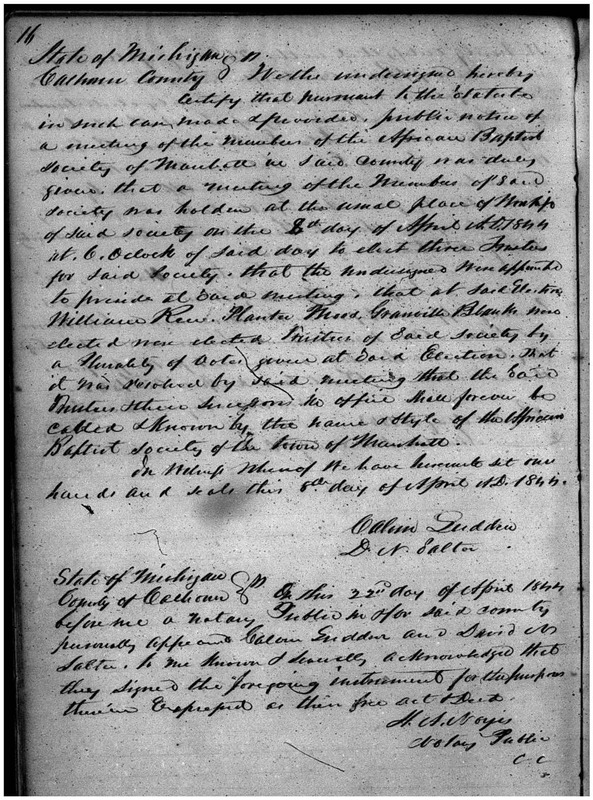 16
State of Michigan
Calhoun County } ss We the undersigned hereby
certify that pursuant to the statute
in such case made & provided. public notice of
a meeting of the members of the African Baptist
society of Marshall in said County was duly
given. that a meeting of the Members of said
society was holden at the usual place of Worship
of said society on the 8th day of April A.D. 1844
at 6. Oclock of said day to elect three Trustees
for said society. that the undersigned were appointed
to preside at said meeting. that at said Election
William Planter Moss. Granville Blanks were
elected were elected Trustees of said society by
a Plurality of votes given at said Election. that
it was resolved by said meeting that the said
Trustees & their successors in office shall forever be
called & known by the name & style of the African
Baptist society of the town of Marshall.
In Witness Whereof We have hereunto set our
hands and seals this 8th day of April A.D. 1844.
Calvin
D. N. Salter
State of Michigan
County of Calhoun } ss On this 22nd day of April 1844
before me a notary Public in & for said county
personally appeared Calvin and David N
Salter. to me known & severally acknowledged that
they signed the foregoing instrument for the purposes
therein Expressed as their free act & Deed
H. A. Noyes
Notary Public
C C